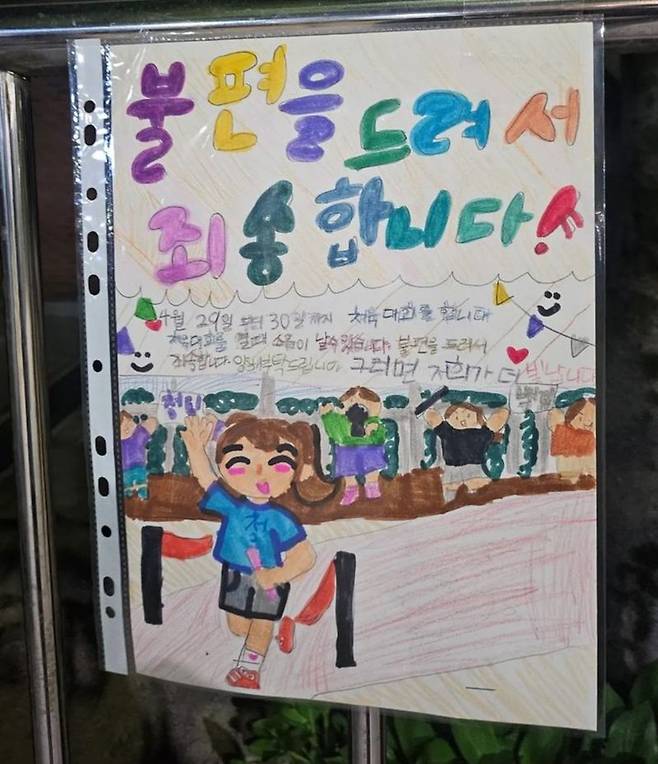 불편을 드려서
죄송합니다!
4월 29일 부터 30일까지 체육 대회를 합니다
체육대회를 할때 소음이 날수있습니다. 불편을 드려서
죄송합니다. 양해부탁드립니다 그러면 저희가 더 빛납니다
청팀
백팀
청